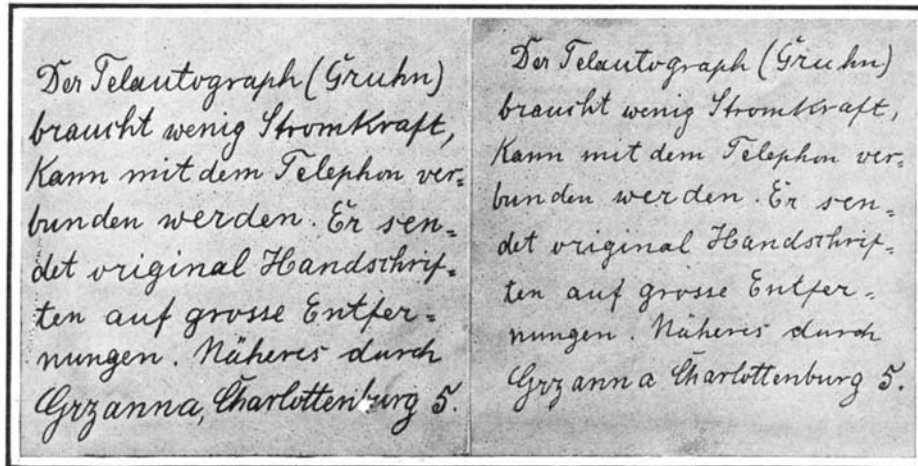 Der Telautograph (Gruhn)
braucht wenig Stromkraft,
kann mit dem Telephon ver=
bunden werden. Er sen=
det original Handschrif=
ten auf grosse Entfer=
nungen. Näheres durch
Grzanna, Charlottenburg 5.
Der Telautograph (Gruhn)
braucht wenig Stromkraft,
kann mit dem Telephon ver=
bunden werden. Er sen=
det original Handschrif=
ten auf grosse Entfer=
nungen. Näheres durch
Grzanna Charlottenburg 5.